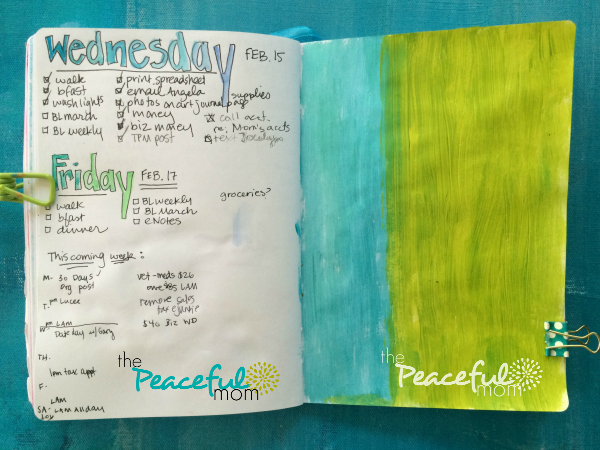 Wednesday FEB. 15
walk
bfast
wash lights
BL march
BL weekly
print spreadsheet
email Angela
photos on art journal page
supplies
money
biz money
TPM post
call acct.
re: Mom's accts
Friday FEB. 17
walk
bfast
dinner
BL weekly
BL March
eNotes
groceries?
This coming week:
M- 30 Days
org post
T.
W. LAM
Date day w/Gary
TH.
1pm tax appt
F.
LAM
SA- LAM All day
vet-meds $26
owe $85 LAM
remove sales
tax
$40 Biz WD
the
Peaceful
mom
the
Peaceful
mom